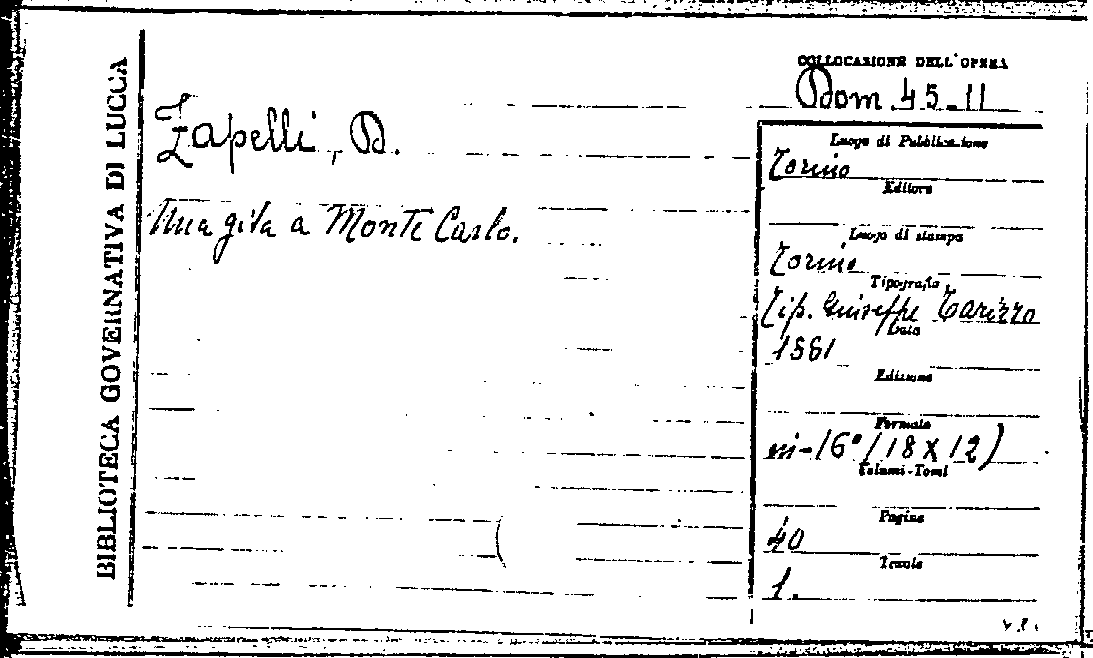 BIBLIOTECA GOVERNATIVA DI LUCCA
COLLOCAZIONE DELL'OPERA
Dom 45-11
Zapelli, D.
Una gita a Monte Carlo.
Luogo di Pubblicazione
Torino
Editore
Luogo di stampa
Torino
Tipografia
Tip. Giuseppe Tarizzo
Data
1881
Edizione
Formato
in-16° (18 X 12)
Volumi-Tomi
Pagine
40
Tavole
1.